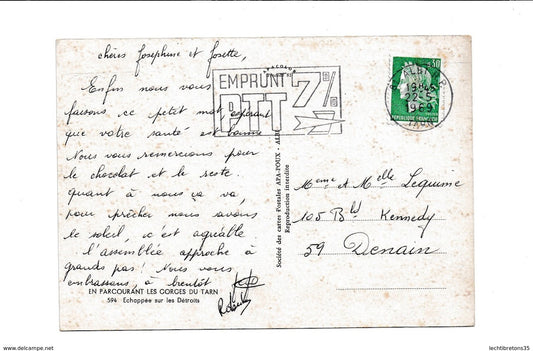 chères Josephine et Josette,
Enfin nous vous
faisons ce petit mot, espérant
que votre santé est bonne
Nous vous remercions pour
le chocolat et le reste.
quant à nous ça va,
pour prêcher nous avons
le soleil, c'est agréable
l'assemblée approche à
grands pas! Nous vous
embrassons, à bientôt
EN PARCOURANT LES GORGES DU TARN
594 Echappée sur les Détroits
EMPRUNT
PTT 7%
Société des cartes Postales APA-POUX - ALBI
Reproduction interdite
19H45
22-5
1969
TARN
REPUBLIQUE FRANÇAISE
Mme et Melle Lequime
105 Bld Kennedy
59 Denain
lechtibretons35